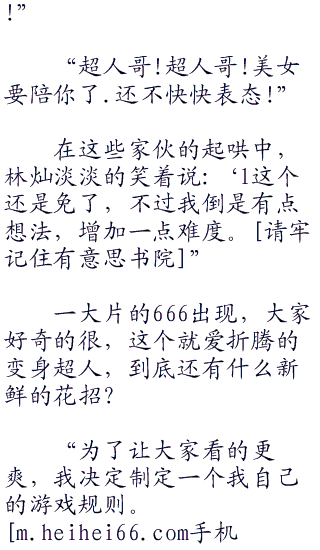 !”
“超人哥!超人哥!美女
要陪你了.还不快快表态!”
在这些家伙的起哄中，
林灿淡淡的笑着说：‘1这个
还是免了，不过我倒是有点
想法，增加一点难度。[请牢
记住有意思书院]”
一大片的666出现，大家
好奇的很，这个就爱折腾的
变身超人，到底还有什么新
鲜的花招？
“为了让大家看的更
爽，我决定制定一个我自己
的游戏规则。
[m.heihei66.com手机